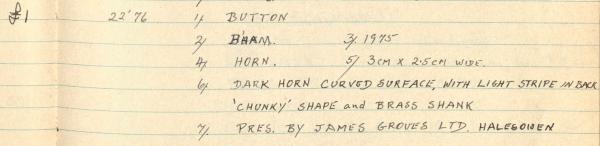 1 22'76 1/ BUTTON
2/ B'HAM. 3/ 1975
4/ HORN. 5/ 3CM X 2.5CM WIDE.
6/ DARK HORN CURVED SURFACE, WITH LIGHT STRIPE IN BACK
'CHUNKY' SHAPE and BRASS SHANK
7/ PRES. BY JAMES GROVES LTD. HALESOWEN